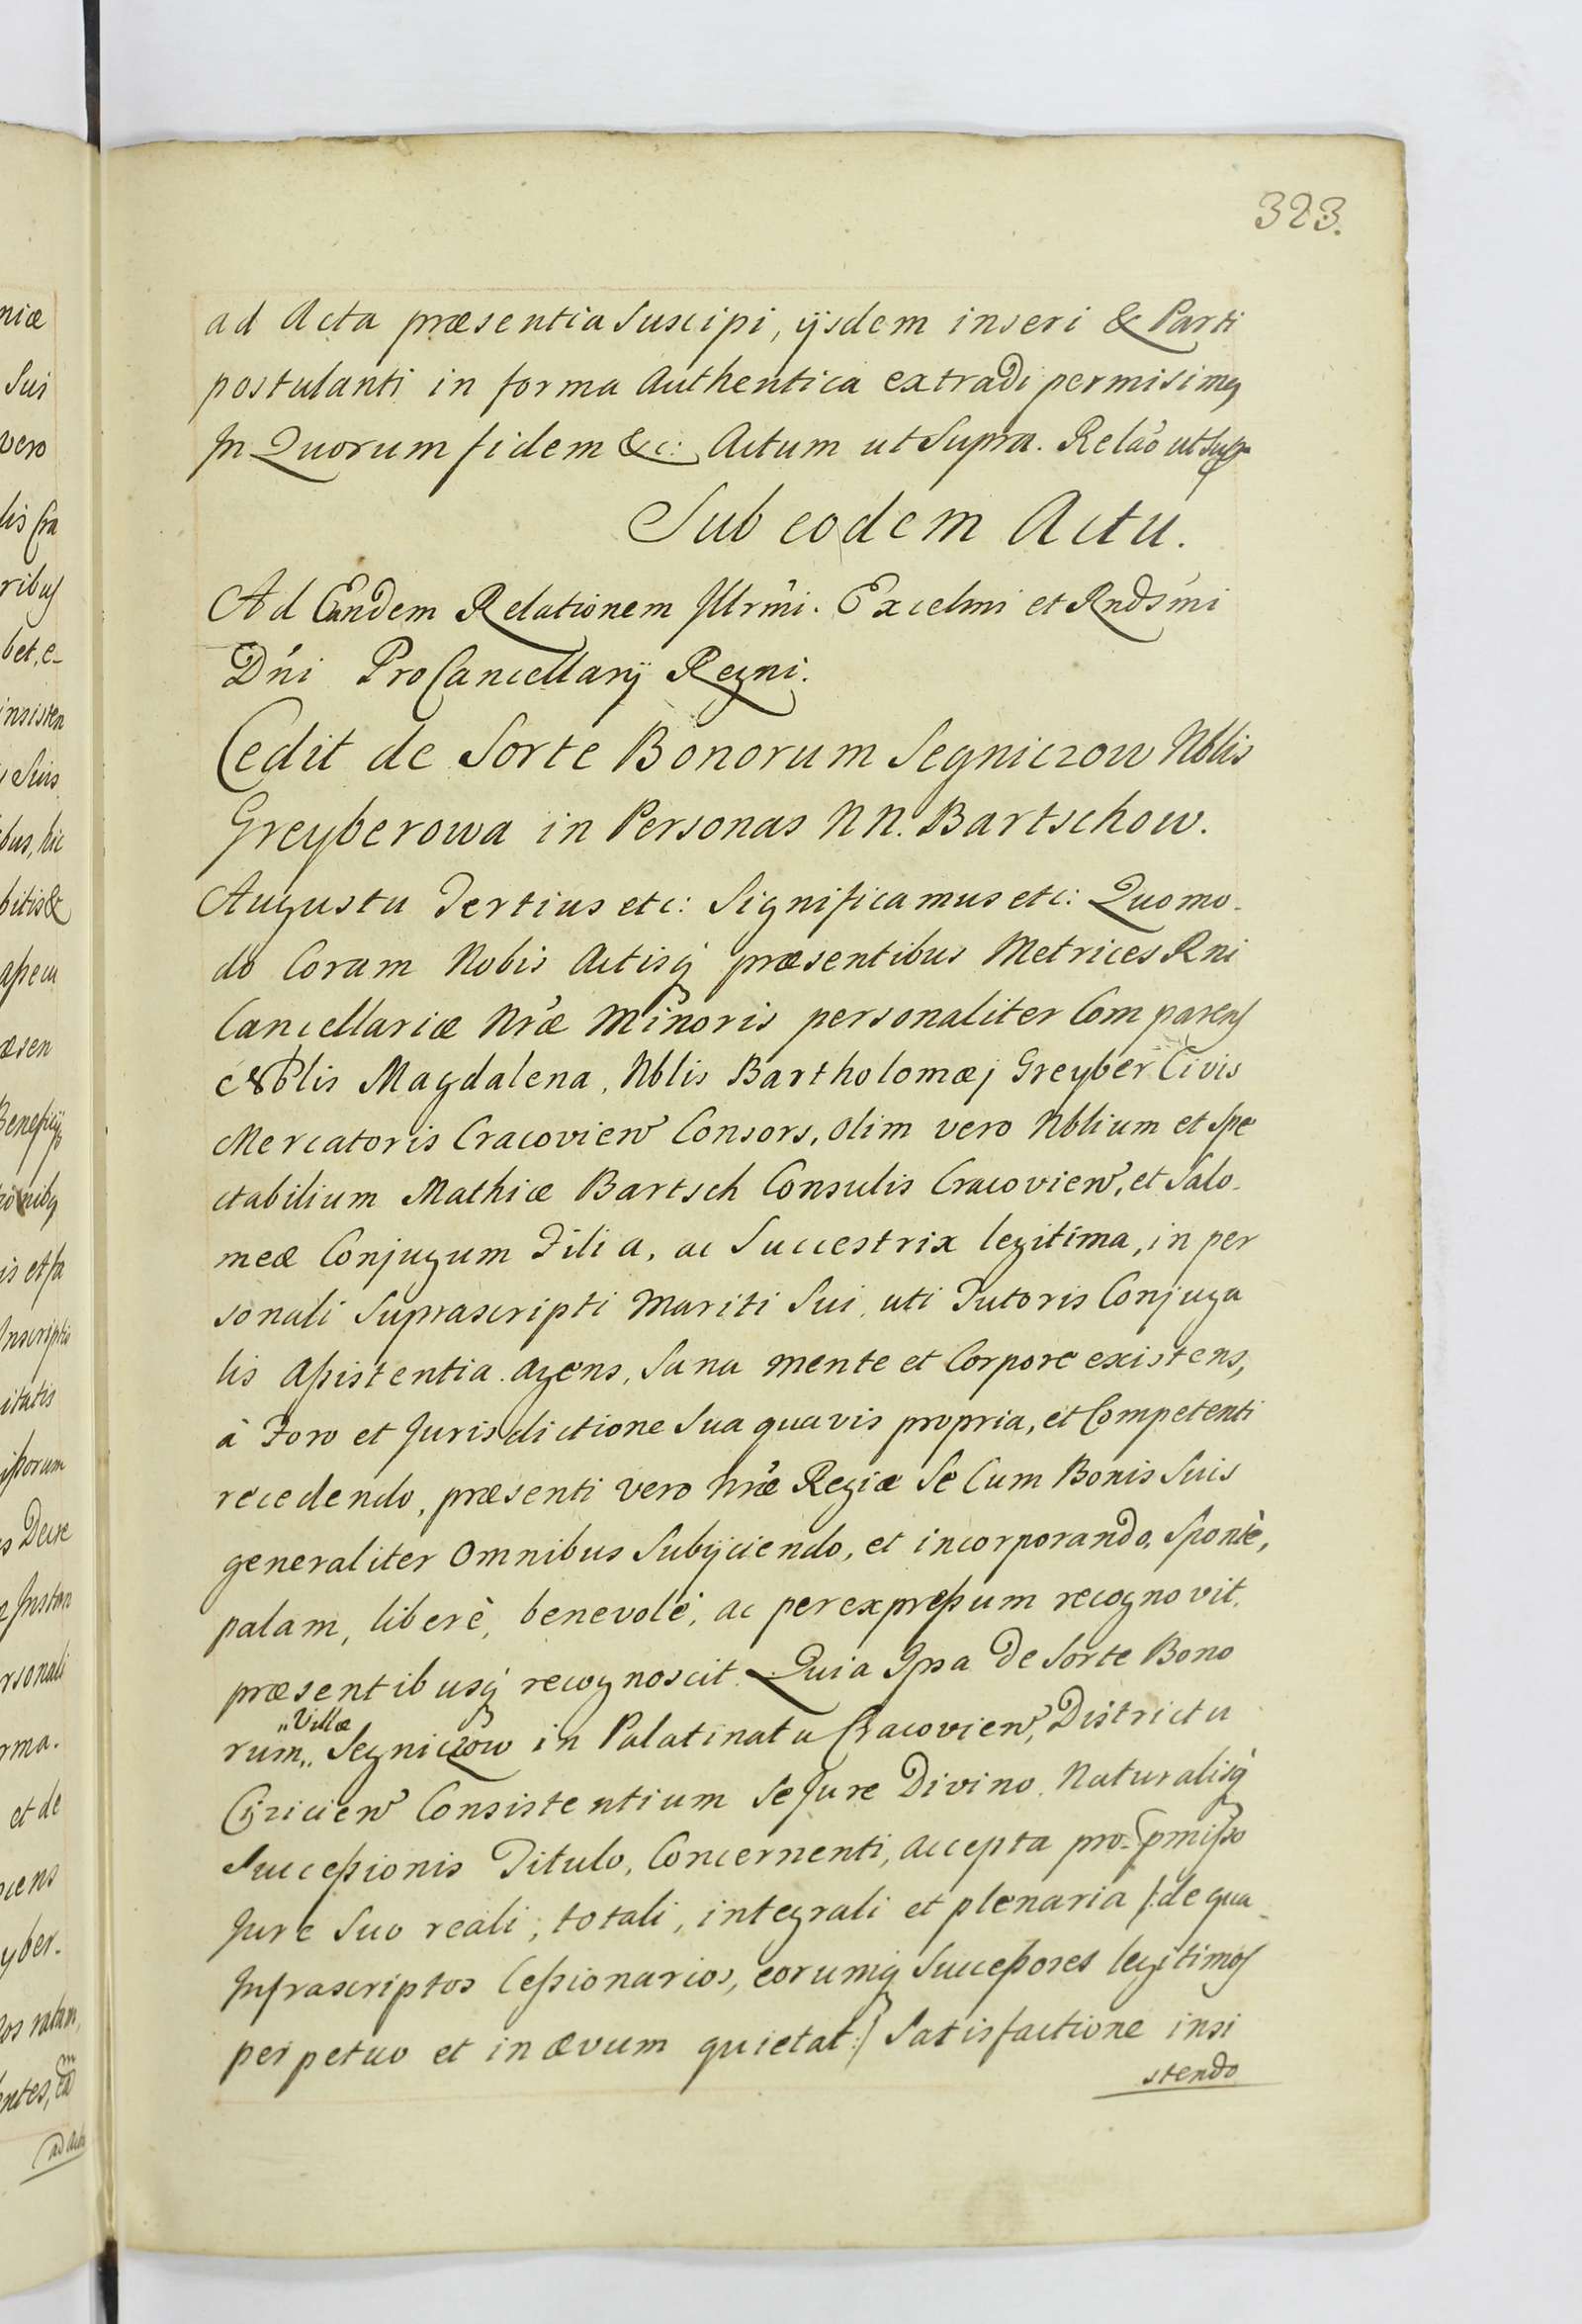 323.
ad Acta præsentia suscipi, ijsdem inseri & Parti
postulanti in forma Authentica extradi permisimq
In Quorum fidem &c: Actum ut Supra. Relão ut Supr
Sub eodem Actu.
Ad Eandem Relationem Illrmi. Excelmi et Rndsmi
Dni ProCancellarij Regni.
Cedit de Sorte Bonorum Segniczow Nblis
Greyberowa in Personas NN. Bartschow.
Augustu Tertius etc: Significamus etc: Quomo-
do Coram Nobis Actisq præsentibus Metrices Rni
Cancellariæ Nræ Minoris personaliter Comparens
Nblis Magdalena, Nblis Bartholomæj Greyber Civis
Mercatoris Cracovien Consors, olim vero Nblium et Spe
ctabilium Mathiæ Bartsch Consulis Cracovien, et Salo-
meæ Conjugum Filia, ac Succestrix legitima, in per
sonali suprascripti Mariti Sui, uti Tutoris Conjuga
lis Assistentia agens, Sana mente et Corpore existens,
à Foro et Jurisdictione Sua quavis propria, et Competenti
recedendo, præsenti vero Nræ Regiæ Se Cum Bonis Suis
generaliter Omnibus Subijciendo, et incorporando, Spontè,
palam, liberè, benevolè, ac per expressum recognovit,
præsentibusq recognoscit. Quia Ipsa De Sorte Bono
„Villæ
rum„ Segniczow in Palatinatu Cracovien, Districtu
Czicien Consistentium Se Jure Divino Naturalisq
Successionis Titulo, Concernenti, accepta pro pmisso
Jure Suo reali, totali, integrali et plenaria /: de qua
Infrascriptos Cessionarios, eorumq Successores legitimos
perpetuo et in ævum quietat :/ Satisfactione insi
stendo
niæ
Sui
vero
lis Cra
ribus
bet, e-
insisten
Suis
bus, hic
bitis &
æsen
is et
Inscriptis
itatis
Decre
Instan
rsonali
rma.
et de
yber.
ntes, ea
ad Acta